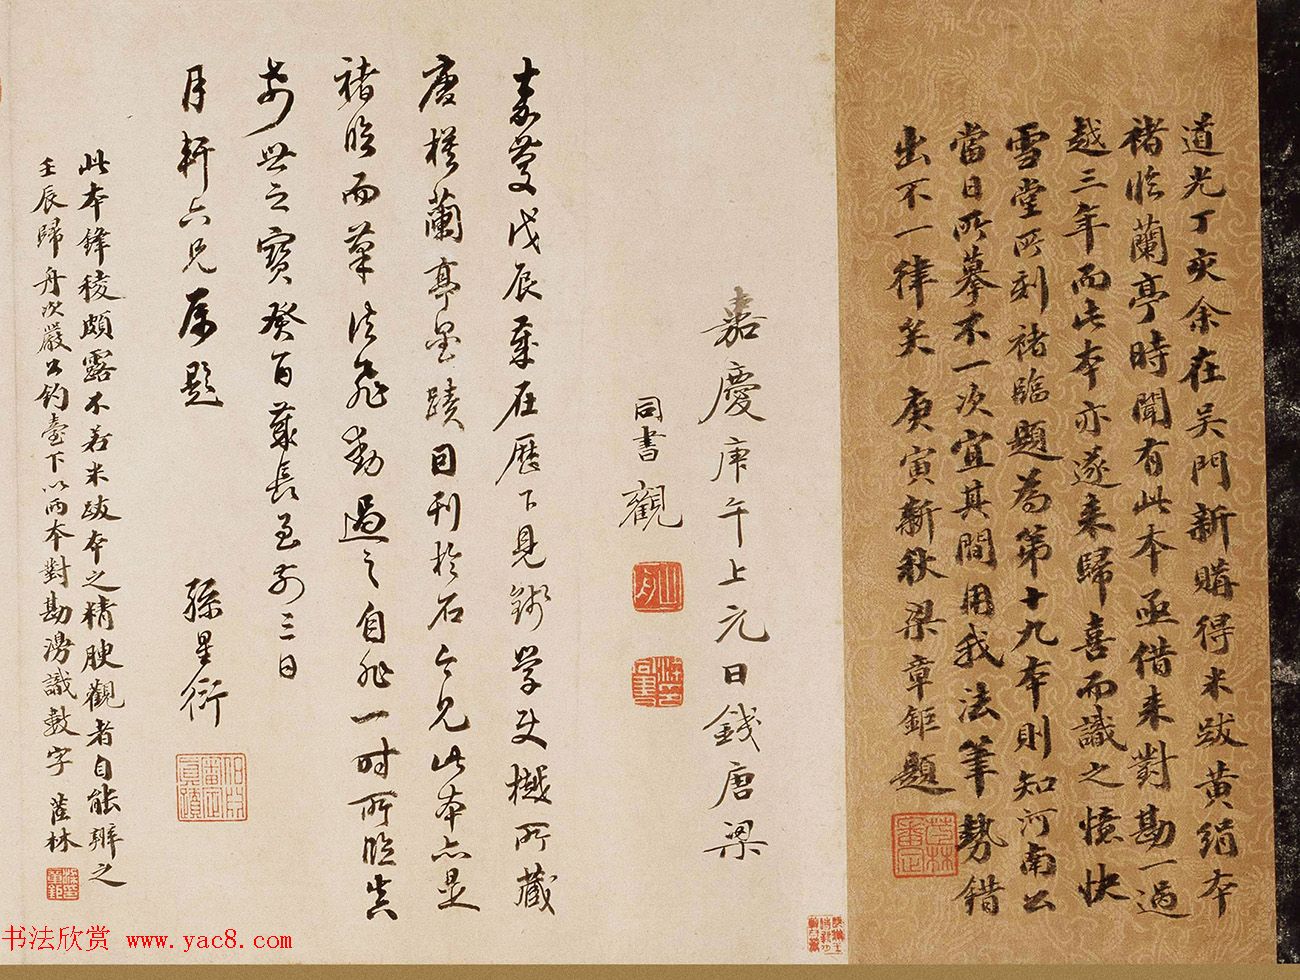 道光丁亥余在吴門新購得米跋黄絹本
褚臨蘭亭時聞有此本亟借来對勘一過
越三年而此本亦遂来歸喜而識之憶快
雪堂所刻褚臨題為第十九本則知河南公
當日所摹不一次宜其間用我法筆勢錯
出不一律矣庚寅新秋梁章鉅題
嘉慶庚午上元日錢唐梁
同書觀
嘉慶戊辰歲在歷下見錢學使樾所藏
唐模蘭亭墨蹟因刊於石今見此本亦是
褚臨而筆法飛動過之自非一時所臨真
希世之寶癸酉歲長至前三日
月軒六兄屬題
孫星衍
此本鋒稜頗露不若米跋本之精腴觀者自能辨之
壬辰歸舟次嚴公釣臺下以兩本對勘漫識數字 茝林
书法欣赏 www.yac8.com